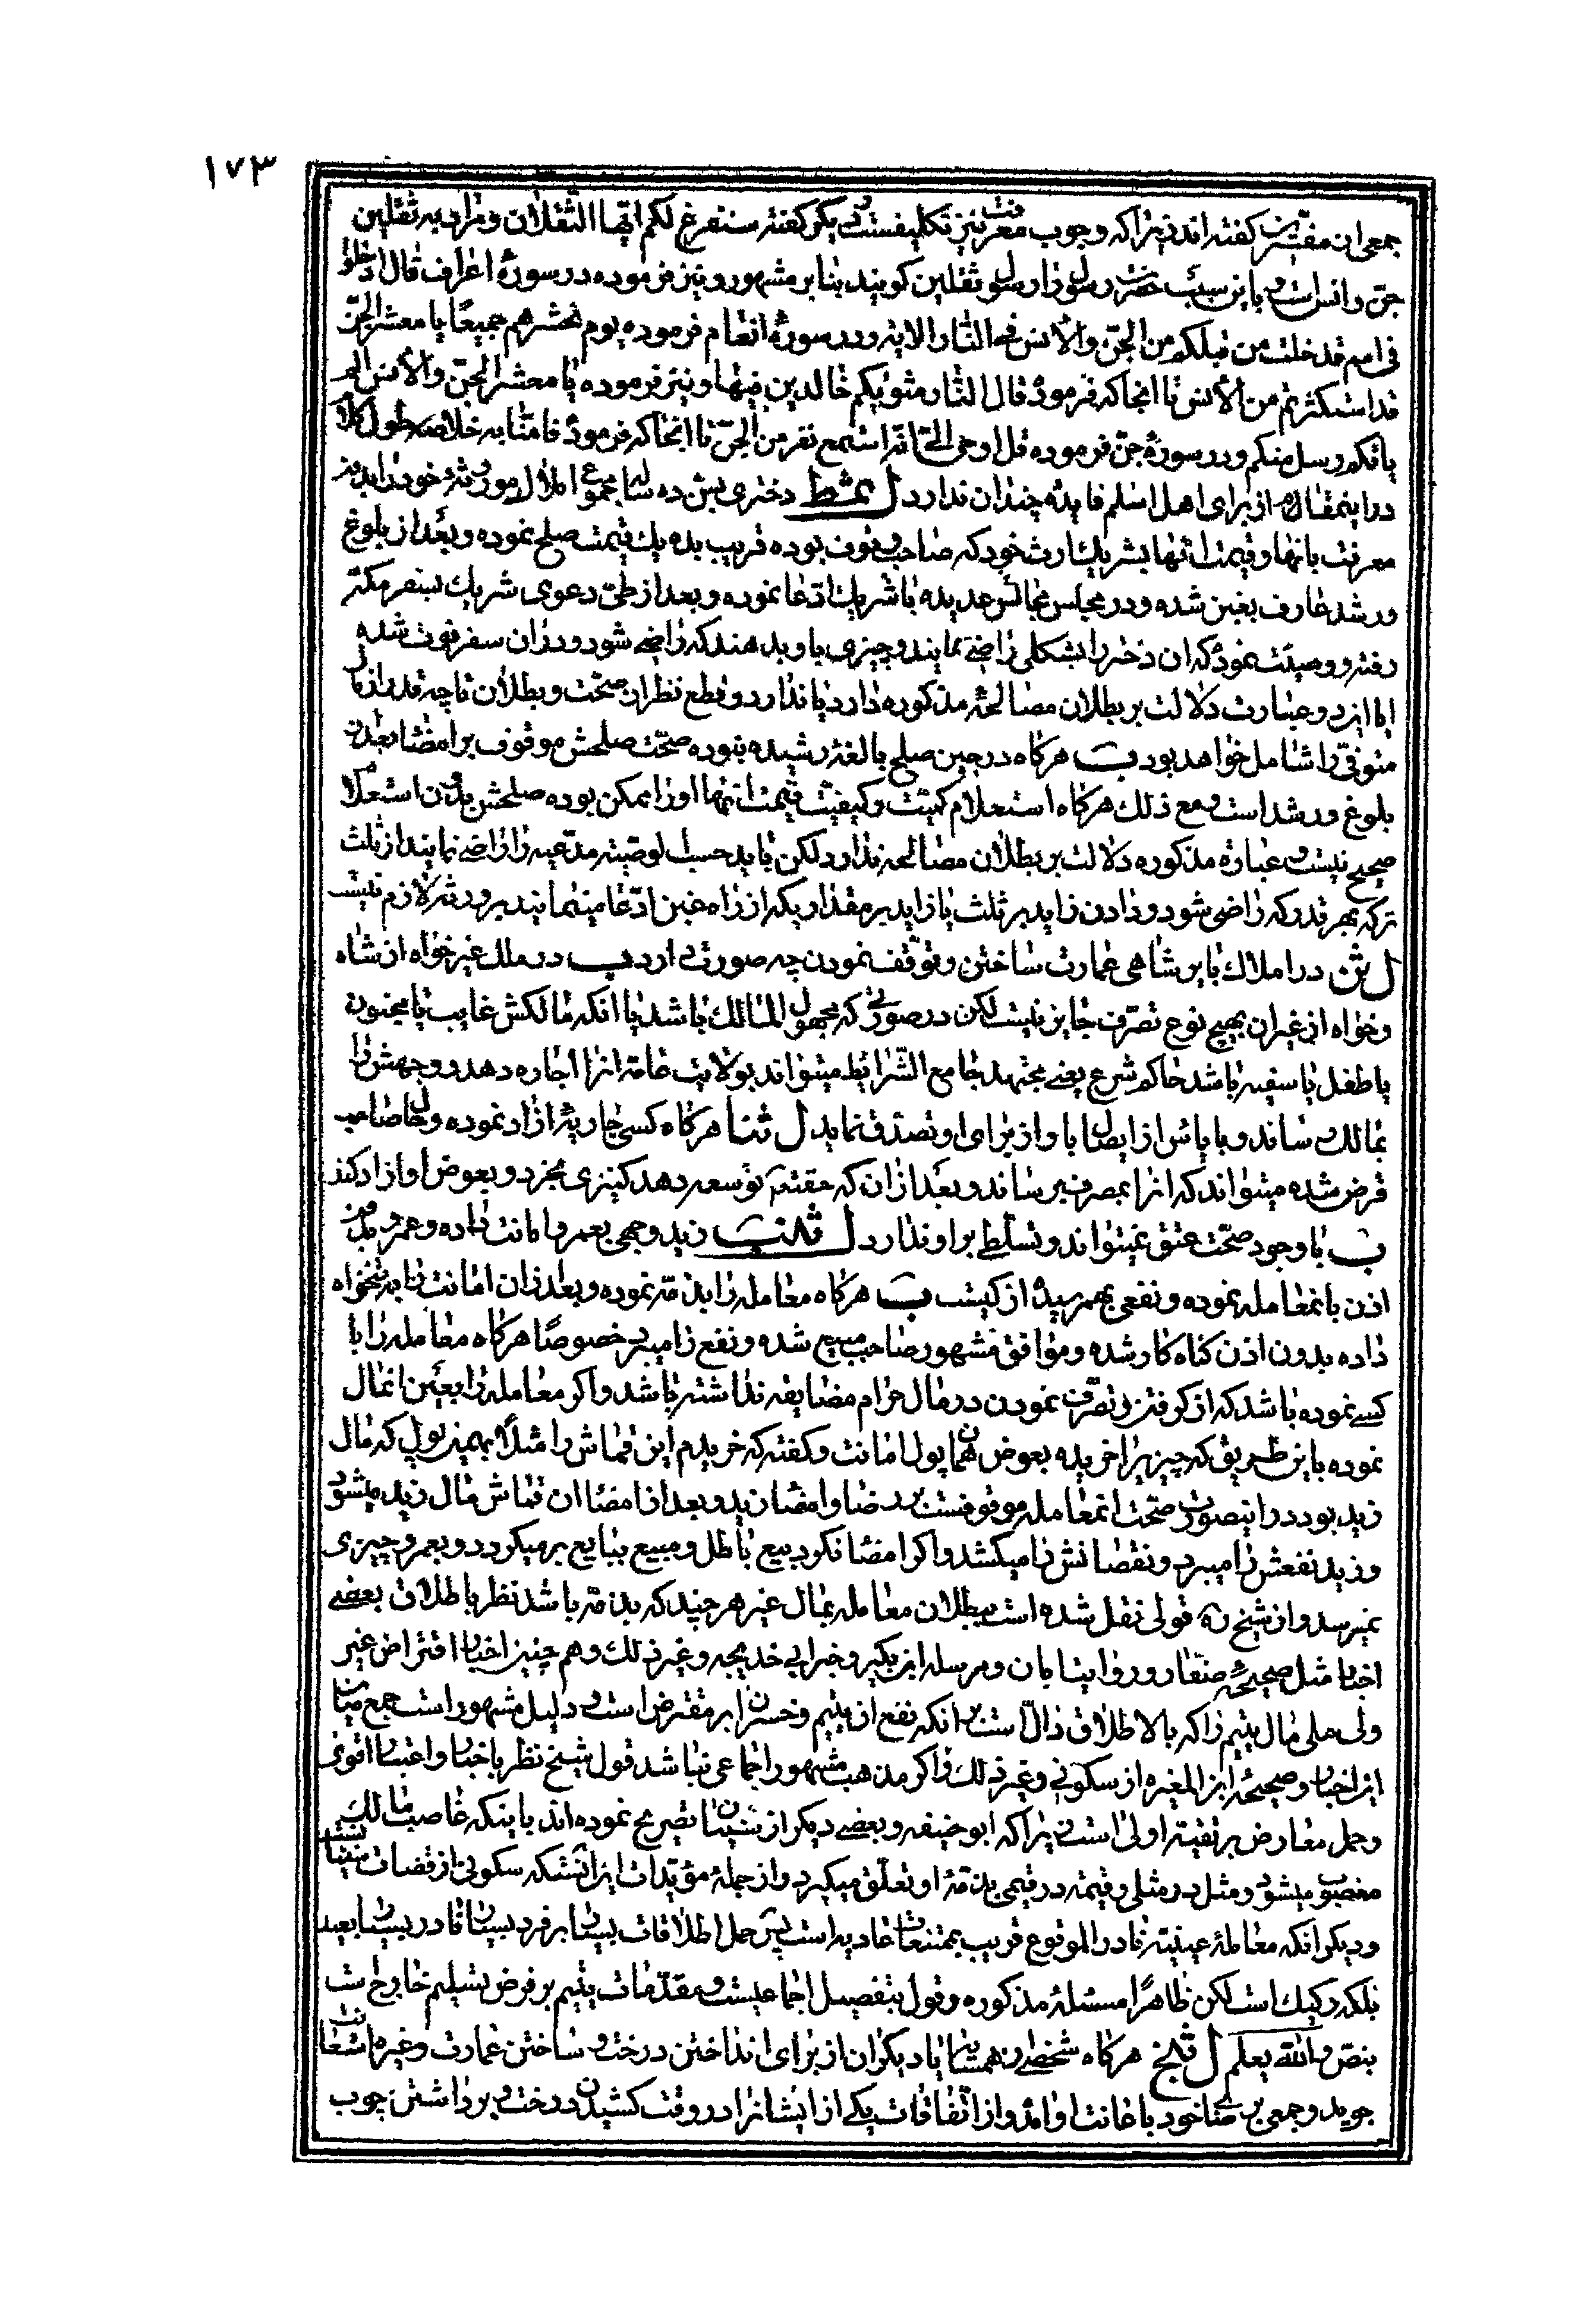 ١٧٣
جمعی از مفسّرین گفته‌اند زیرا که وجوب معرفت نیز تکلیفست و دیگر گفته سنفرغ لکم ایّها الثّقلان و مراد به ثقلین
جنّ و انس است و باین سبب حضرت رسول را رسول ثقلین گویند بنا بر مشهور و نیز فرموده در سورۀ اعراف قال ادخلوا
فی امم قد خلت من قبلکم من الجنّ و الانس فی النّار الایه و در سورۀ انعام فرموده یوم نحشرهم جمیعًا یا معشر الجنّ
قد استکثرتم من الانس تا انجا که فرموده قال النّار مثویکم خالدین فیها و نیز فرموده یا معشر الجنّ و الانس الم
یاتکم رسل منکم و در سورۀ جنّ فرموده قل اوحی الیّ انّه استمع نفر من الجنّ تا انجا که فرموده فامنّا به خلاصه طول کلام
در اینمقال از برای اهل اسلام فایده چندان ندارد ل دختری بسن ده ساله مجموع املاک موروثۀ خود را بدون
معرفت بانها و قیمت انها بشریک ارث خود که صاحب وقوف بوده قریب بده یک قیمت صلح نموده و بعد از بلوغ
و رشد عارف بغبن شده و در مجلس مجالس عدیده با شریک ادّعا نموده و بعد از طیّ دعوی شریک بسفر مکّه
رفته و وصیّت نموده که ان دختر را بشکلی راضی نمایند و چیزی باو بدهند که راضی شود و در ان سفر فوت شده
ایا این دو عبارت دلالت بر بطلان مصالحۀ مذکوره دارد یا ندارد و قطع نظر از صحّت و بطلان تا چه قدر از مال
متوفّی را شامل خواهد بود ب هرگاه در حین صلح بالغۀ رشیده نبوده صحّت صلحش موقوف بر امضا بعد از
بلوغ و رشد است و مع ذلک هرگاه استعلام کمیّت و کیفیّت قیمت انها او را ممکن بوده صلحش بدون استعلام
صحیح نیست و عبارۀ مذکوره دلالت بر بطلان مصالحه ندارد لکن باید حسب الوصیّه مدّعیه را راضی نمایند از ثلث
ترکه بهر قدر که راضی شود و دادن زاید بر ثلث یا زاید بر مقداریکه از راه غبن ادّعا مینماید بر ورثه لازم نیست
ل در املاک بایر شاهی عمارت ساختن و توقّف نمودن چه صورت دارد ب در ملک غیر خواه از شاه
و خواه از غیر ان بهیچ نوع تصرّف جایز نیست لکن در صورتی که مجهول المالک باشد یا انکه مالکش غایب یا مجنون
یا طفل یا سفیه باشد حاکم شرع یعنی مجتهد جامع الشّرایط میتواند بولایت عامّه انرا اجاره دهد و وجهش را
بمالک رساند و با یاس از ایصال باو از برای او تصدّق نماید ل هرگاه کسی جاریۀ ازاد نموده و حال صاحب
قرض شده میتواند که انرا بمصرف رساند و بعد از ان که حقتعم توسعه دهد کنیزی بخرد و بعوض او ازاد کند
ب با وجود صحّت عتق نمیتواند و تسلّطی بر او ندارد ل زید وجهی بعمرو امانت داده و عمرو بدون
اذن با نمعامله نموده و نفعی بهم رسیده از کیست ب هرگاه معامله را بذمّه نموده و بعد از ان امانت را به تنخواه
داده بدون اذن گناه کار شده و موافق مشهور صاحب مبیع شده و نفع را میبرد خصوصًا هرگاه معامله را با
کسی نموده باشد که از گرفتن و تصرّف نمودن در مال حرام مضایقه نداشته باشد و اگر معامله را بعین انمال
نموده باین طریق که چیزیرا خریده بعوض همان پول امانت و گفته که خریدم این قماش را مثلاً بهمین پول که مال
زید بود در اینصورت صحّت انمعامله موقوفست بر رضا و امضا زید و بعد از امضا ان قماش مال زید میشود
و زید نفعش را میبرد و نقصانش را میکشد و اگر امضا نکرد بیع باطل و مبیع ببایع بر میگردد و بعمرو چیزی
نمیرسد و از شیخ ره قولی نقل شده است ببطلان معامله بمال غیر هر چند که بذمّه باشد نظر باطلاق بعضی
اخبار مثل صحیحۀ صفّار و روایت ابان و مرسله ابن بکیر و خبر ابی خدیجه و غیر ذلک و هم چنین اخبار اقتراض غیر
ولی ملی مال یتیم را که بالاطلاق دالّ است بر انکه نفع از یتیم و خسران بر مقترض است و دلیل مشهور است جمع میان
این اخبار و صحیحۀ ابن المغیره از سکونی و غیر ذلک و اگر مذهب مشهور اجماعی نباشد قول شیخ نظر باخبار و اعتبار اقوی
و حمل معارض بر تقیّه اولی است زیرا که ابو حنیفه و بعضی دیگر از سنّیان تصریح نموده‌اند باینکه غاصب مالک
مغصوب میشود و مثل در مثلی و قیمته در قیمی بذمّۀ او تعلّق میگیرد و از جملۀ مؤیّدات این انستکه سکونی از قضات سنّیان است
و دیگر انکه معاملۀ عینیّه نادر الوقوع قریب بممتنعات عادیه است پس حمل اطلاقات بسیار بر فرد بسیار نادر بسیار بعید
بلکه رکیک است لکن ظاهرًا مسئلۀ مذکوره و قول بتفصیل اجماعیست و مقدّمات یتیم بر فرض تسلیم خارج است
بنصّ واللّه یعلم ل هرگاه شخصی از همسایها یا دیگران از برای انداختن درخت و ساختن عمارت و غیره استعانت
جوید و جمعی برضا خود باعانت او امدند و از اتّفاقات یکی از ایشانرا در وقت کشیدن درخت و برداشتن چوب